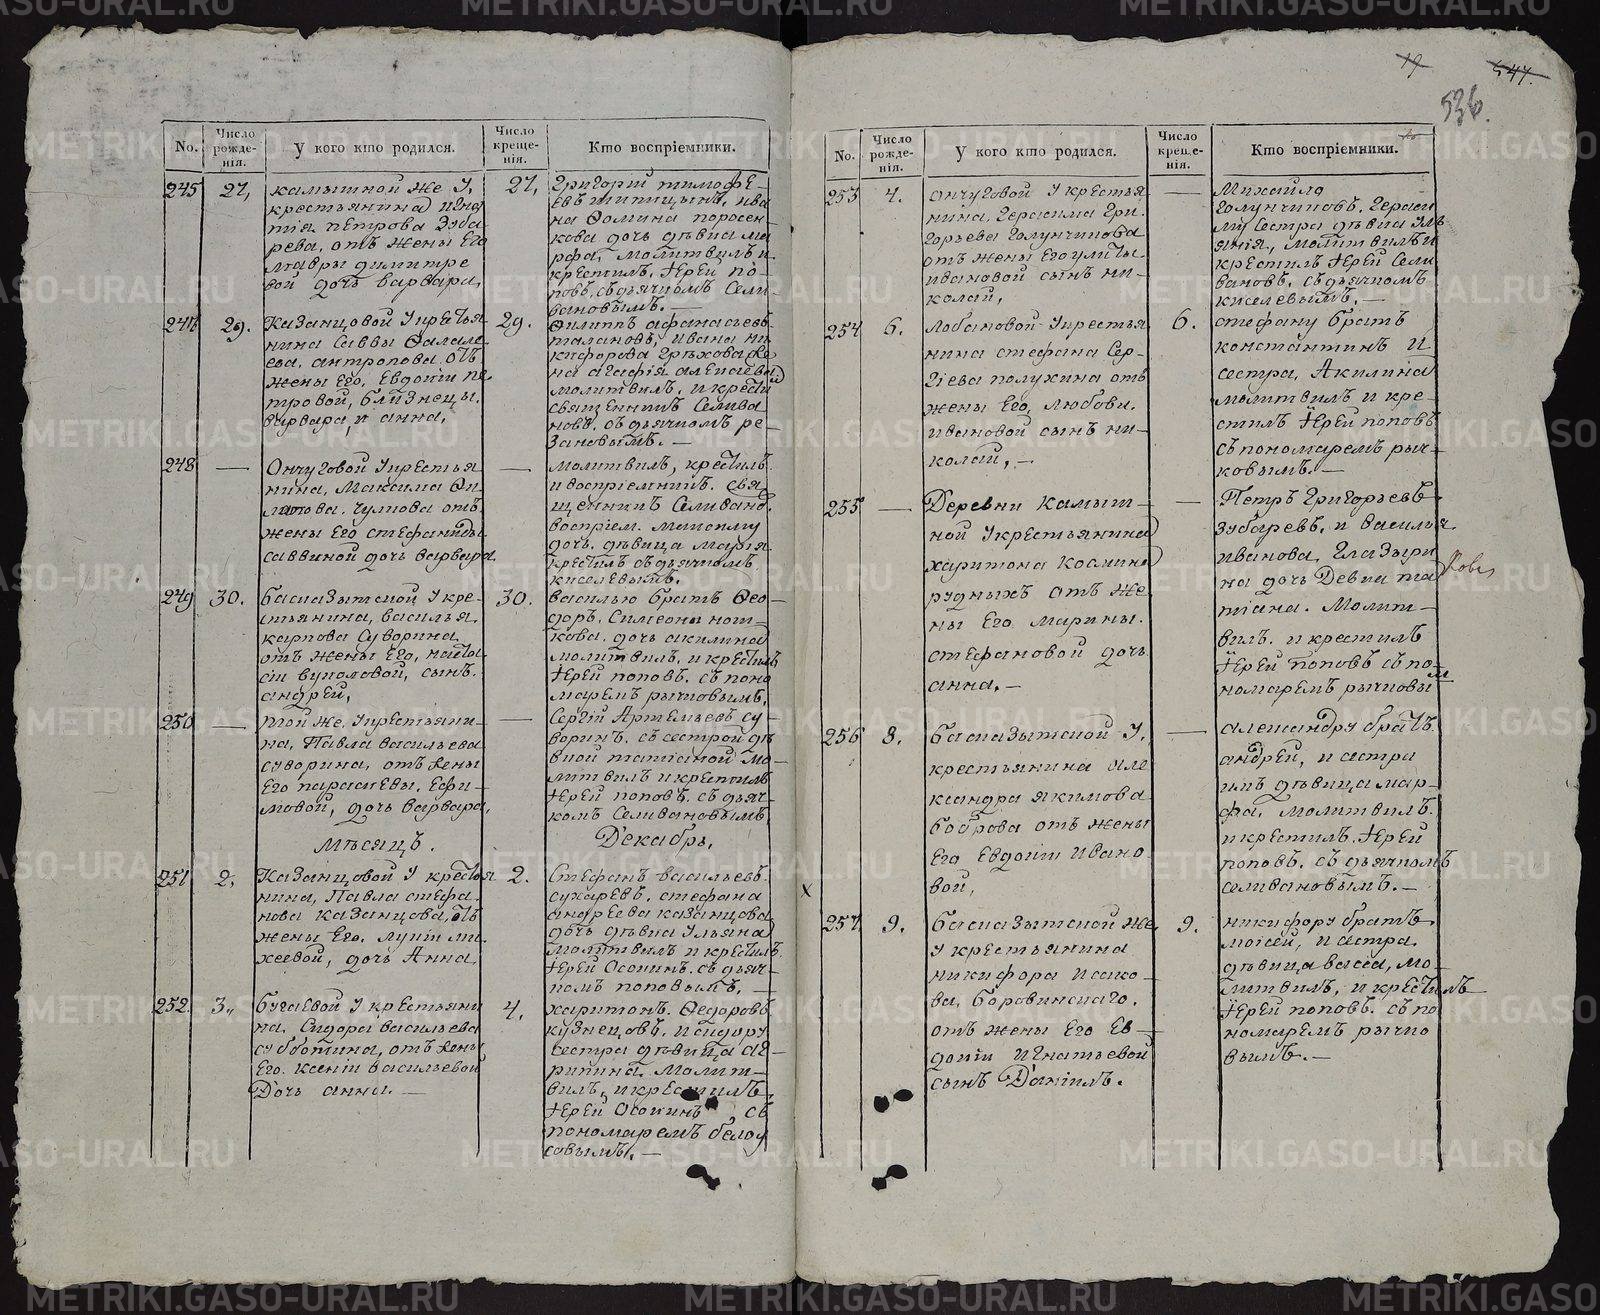 19
547.
536.
No.
Число рожде-нія.
У кого кто родился.
Число креще-нія.
Кто воспріемники.
245
27,
камышной же У,
крестьянина Игна
тія Петрова Зуба
рева, отъ жены Его
Мавры Димитре
вой дочь варвара,
27,
Григорій тимофе-
Евъ птицынъ, ива
на Ѳомина поросен-
кова дочь дѣвиа ма
рфа, молитвилъ и
крестилъ, Іерей по-
повъ, съ дьячкомъ Сели
вановымъ. —
29.
Казанцовой У кресть
янина Саввы Ѳалале
ева, антропова отъ
жены Его, Евдокіи пе
тровой, близнецы.
варвара, и анна,
29.
Филиппъ афанасьевъ
талановъ, ивана ни
кифорова Грѣхова же
на агафія алексѣева
молитвилъ, и крести
священникъ Селива
новъ, съ дьячкомъ ре-
зановымъ. —
248
—
Ончуговой У крестья
нина, Максима Фи-
латова, Чулкова отъ
жены Его стефаниды
саввиной дочь варвара
—
молитвилъ, крестилъ
и воспріемникъ, свя
щенникъ Селивано.
воспріем. максиму
дочь, дѣвица марія
крестилъ съ дьячкомъ
киселевымъ.
249
30.
басказытской У кре-
стьянина, василья
карпова Суворина
отъ жены Его, наста
сіи вуколовой, сынъ.
андрей,
30.
василью братъ Ѳео-
доръ, Симеона кош-
кова, дочь акилина
молитвилъ, и крестилъ
Іерей поповъ, съ поно
маремъ рычковымъ,
250
—
той же, У крестьяни-
на, Павла васильева
суворина, отъ жены
Его параскевы, Ефи-
мовой, дочь варвара,
—
Сергій Артемьевъ су-
воринъ, съ сестрой дѣ
вкой татіаной мо-
литвилъ и крестилъ
Іерей поповъ, съ дьяч-
комъ Селивановымъ,
Мѣсяцъ.
Декабрь,
251
2,
Казанцовой У крестья
нина, Павла стефа-
нова казанцова, отъ
жены Его, лукіи ми-
хеевой, дочь Анна
2.
Стефанъ васильевъ
сухаревъ, стефана
андреева казанцова
дочь дѣвиа Ульяна
Молитвилъ и крестилъ
Іерей Осокинъ, съ дьяч-
комъ поповымъ, —
252.
3,
бугаевой У крестьяни
на, Сидора васильева
субботина, отъ жены
Его, ксеніи васильевой
Дочь анна. —
4,
харитонъ, Ѳедоровъ
кузнецовъ, и сидору
сестра дѣвица аг-
рипина, Молит-
вилъ, и крестилъ,
Іерей Осокинъ съ
пономаремъ белоу
совымъ, —
No.
Число рожде-нія.
У кого кто родился.
Число креще-нія.
Кто воспріемники.
253
4.
ончуговой У крестья
нина, Герасима Гри-
горьева Голунчикова
отъ жены Его улиты
ивановой сынъ ни-
колай,
—
Михайло
Голунчиковъ, Гераси
му сестра дѣвиа Уль
янія, молитвилъ и
крестилъ Іерей Сели
вановъ, съ дьячкомъ
киселевымъ, —
254
6.
лобановой У крестья
нина стефана Сер-
гіева полухина отъ
жены Его, любови,
ивановой сынъ ни-
колай, —
6.
стефану братъ
константинъ и
сестра, Акилина
молитвилъ и кре-
стилъ Іерей поповъ
съ пономаремъ рыч-
ковымъ. —
255
—
Деревни камыш-
ной У крестьянина
харитона космина
рудныхъ отъ же-
ны Его, марины.
стефановой дочь
анна. —
—
Петръ Григорьевъ
Зубаревъ, и василья
иванова, Глазыри
кова
на дочь Девиа та
тіана. Молит-
вилъ, и крестилъ
Іерей поповъ съ по-
номаремъ рычковы
м
256
8.
басказытской У,
крестьянина але
ксандра якимова
боброва отъ жены
Его Евдокіи Ивано
вой,
—
александру братъ
андрей, и сестра
имъ дѣвица мар-
фа, молитвилъ
и крестилъ, Іерей
поповъ, съ дьячкомъ
селивановымъ. —
х
257
9.
басказытской же,
У крестьянина
никифора исако-
ва, боровинскаго,
отъ жены Его Ев-
докіи Игнатьевой
сынъ Даніилъ.
9.
никифору братъ
моисей, и сестра
дѣвица васса, мо-
литвилъ, и крестилъ
Іерей поповъ, съ по
номаремъ рычко
вымъ. —
METRIKI.GASO-URAL.RU